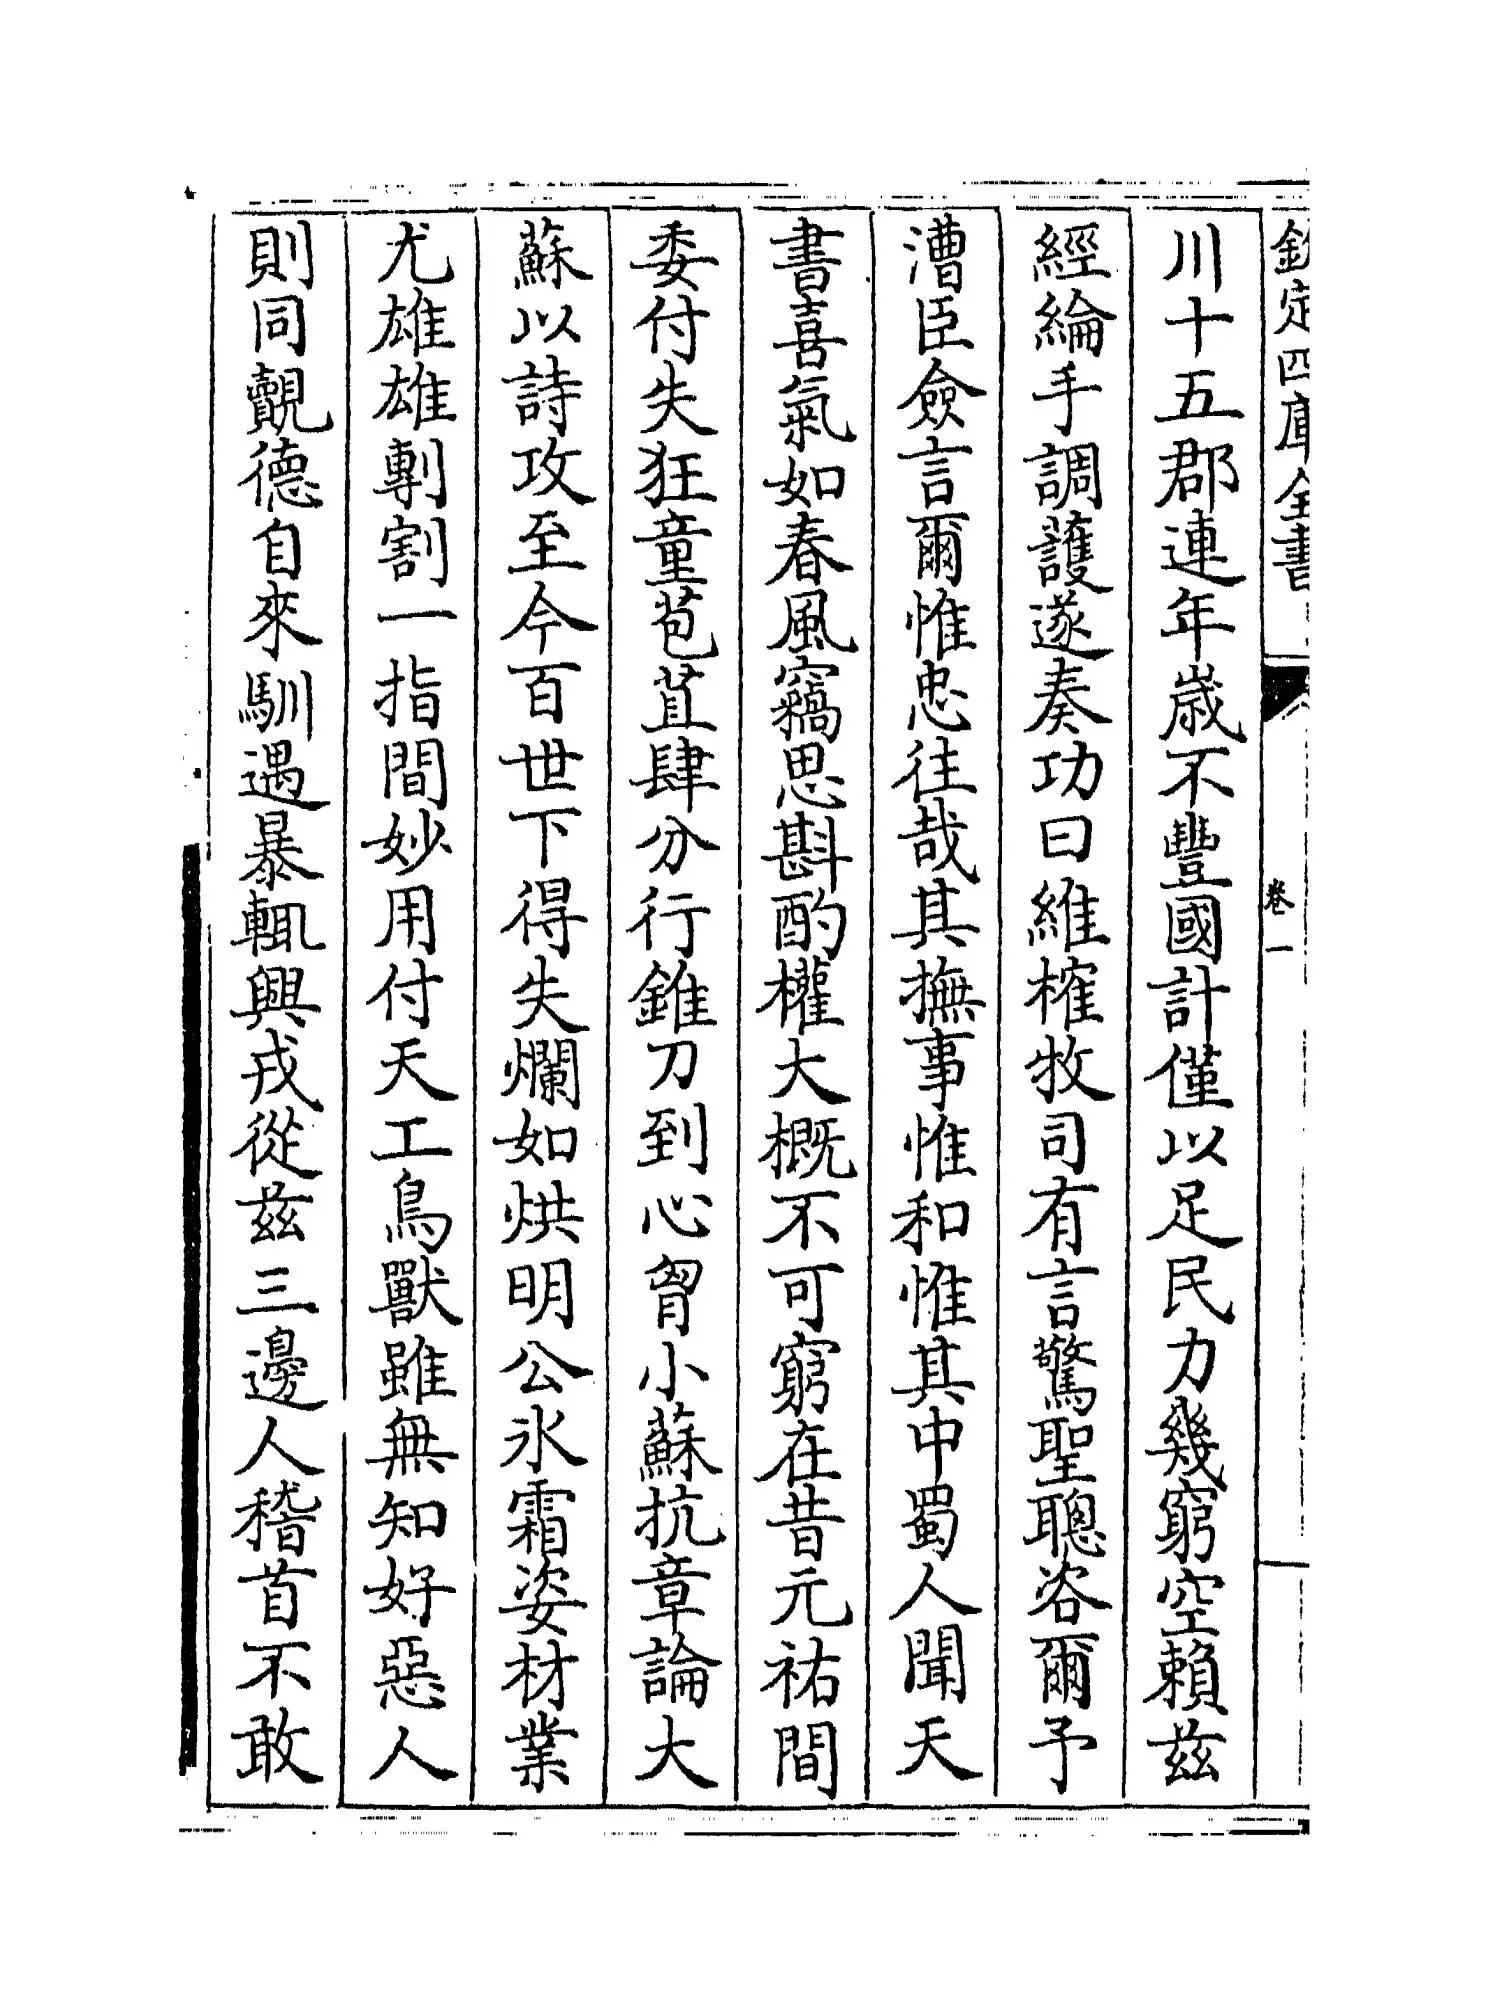 欽定四庫全書
卷一
川十五郡連年歲不豐國計僅以足民力幾窮空賴兹
經綸手調護遂奏功曰維榷牧司有言驚聖聰咨爾予
漕臣僉言爾惟忠往哉其撫事惟和惟其中蜀人聞天
書喜氣如春風竊思斟酌權大概不可窮在昔元祐間
委付失狂童苞苴肆分行錐刀到心胷小蘇抗章論大
蘇以詩攻至今百世下得失爛如烘明公氷霜姿材業
尤雄雄剸割一指間妙用付天工鳥獸雖無知好惡人
則同覿德自來馴遇暴輒興戎從兹三邊人稽首不敢